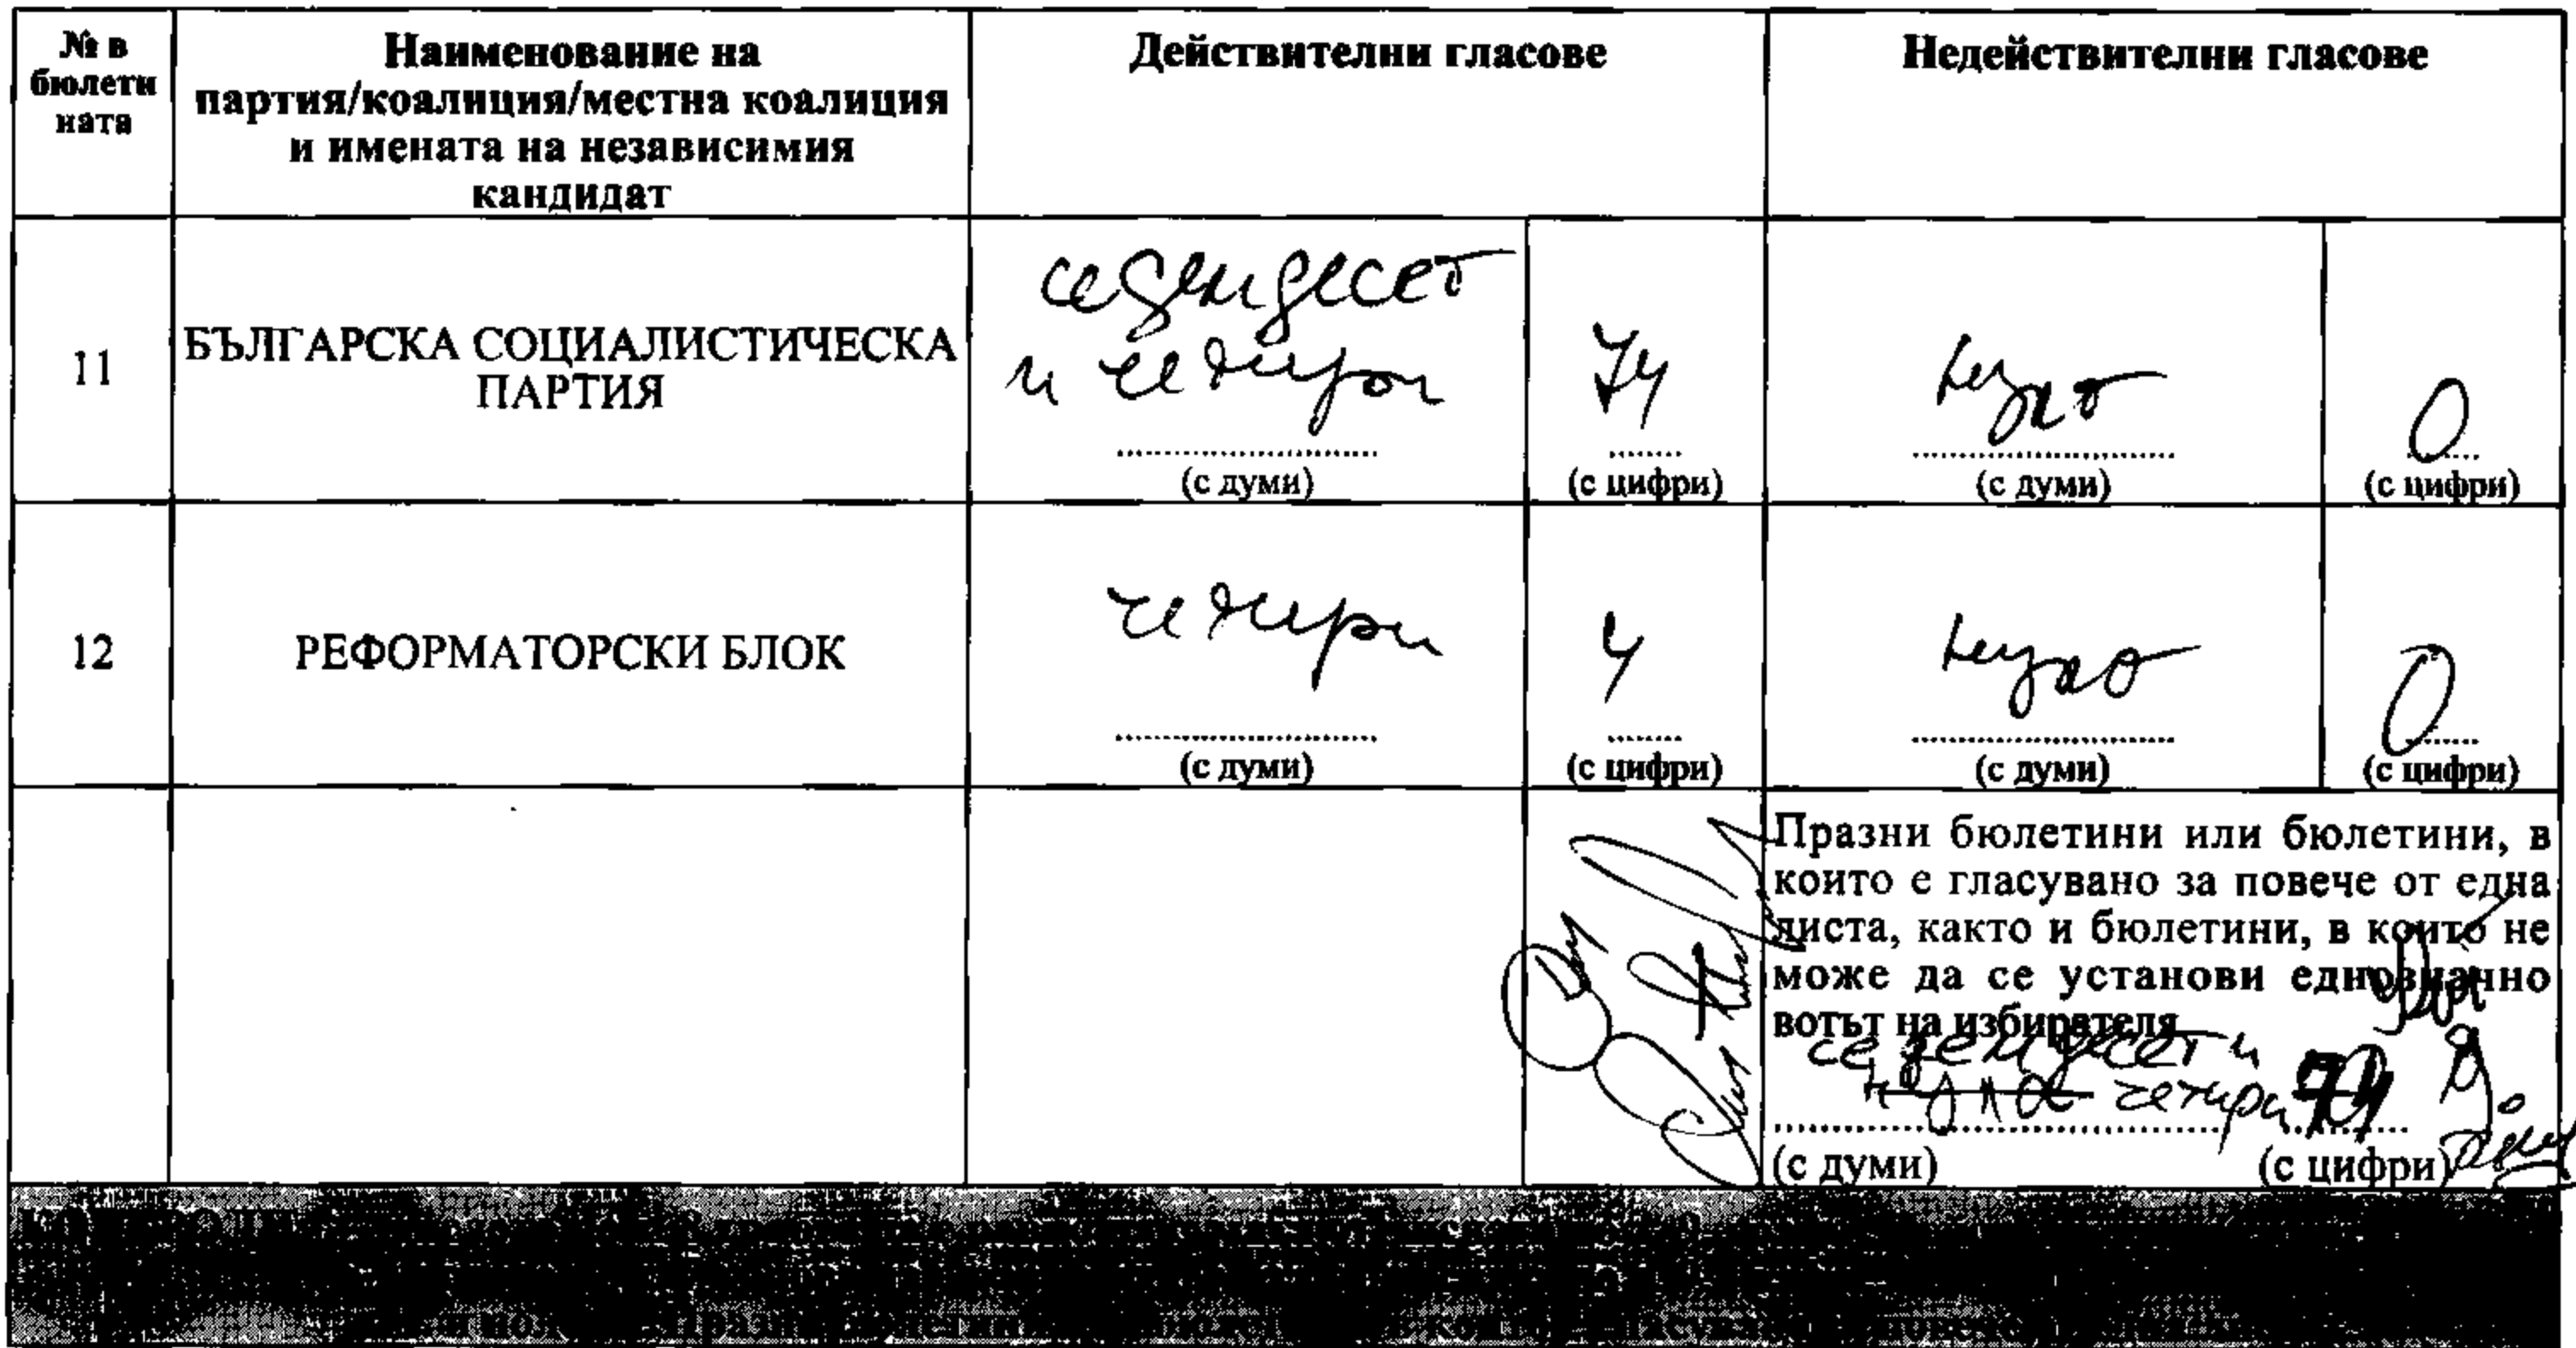 № в бюлети ната
Наименование на партия/коалиция/местна коалиция и имената на независимия кандидат
Действителни гласове
Недействителни гласове
11
БЪЛГАРСКА СОЦИАЛИСТИЧЕСКА
ПАРТИЯ
седемдесет
и четири
(с думи)
74
(с цифри)
нула
(с думи)
0
(с цифри)
12
РЕФОРМАТОРСКИ БЛОК
четири
(с думи)
4
(с цифри)
нула
(с думи)
0
(с цифри)
Празни бюлетини или бюлетини, в
които е гласувано за повече от една
листа, както и бюлетини, в които не
може да се установи еднозначно
вотът на избирателя
седемдесет и
нула четири 74
(с думи) (с цифри)